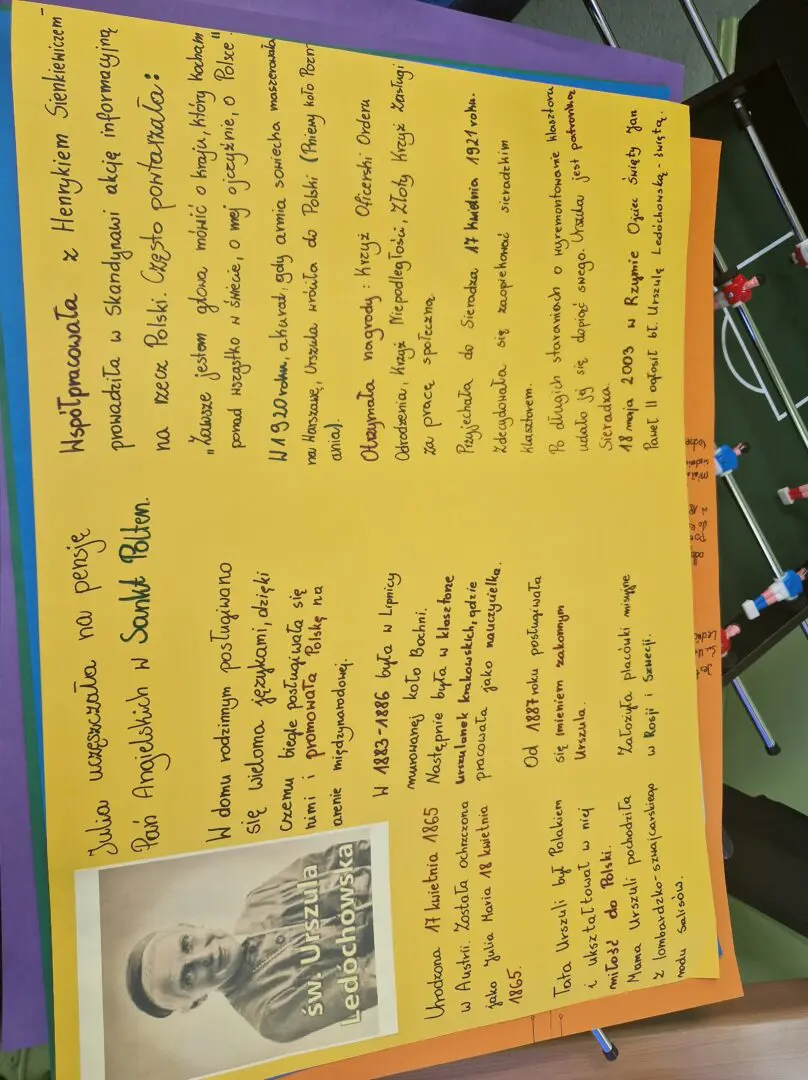 św. Urszula
Ledóchowska
Urodzona 17 kwietnia 1865
w Austrii. Została ochrzczona
jako Julia Maria 18 kwietnia
1865.
Tata Urszuli był Polakiem
i ukształtował w niej
miłość do Polski.
Mama Urszuli pochodziła
z lombardzko-szwajcarskiego
rodu Salisów.
Julia uczęszczała na pensję
Pań Angielskich w Sankt Polten.
W domu rodzinnym posługiwano
się wieloma językami, dzięki
czemu biegle posługiwała się
nimi i promowała Polskę na
arenie międzynarodowej.
W 1883-1886 była w Lipnicy
murowanej koło Bochni.
Następnie była w klasztorze
urszulanek krakowskich, gdzie
pracowała jako nauczycielka.
Od 1887 roku posługiwała
się imieniem zakonnym
Urszula.
Założyła placówki misyjne
w Rosji i Szwecji.
Współpracowała z Henrykiem Sienkiewiczem-
prowadziła w Skandynawi akcję informacyjną
na rzecz Polski. Często powtarzała:
"Zawsze jestem głowa mówić o kraju, który kocham
ponad wszystko w świecie, o mej ojczyźnie, o Polsce."
W 1920 roku, akurat, gdy armia sowiecka maszerowała
na Warszawę, Urszula wróciła do Polski (Pniewy koło Pozn-
ania).
Otrzymała nagrody: Krzyż Oficerski Orderu
Odrodzenia, Krzyż Niepodległości, Złoty Krzyż Zasługi
za pracę społeczną
Przyjechała do Sieradza 17 kwietnia 1921 roku.
Zdecydowała się zaopiekować sieradzkim
klasztorem.
Po długich staraniach o wyremontowanie klasztoru
udało jej się dopiąć swego. Urszula jest patronką
Sieradza.
18 maja 2003 w Rzymie Ojciec Święty Jan
Paweł II ogłosił bł. Urszulę Ledóchowską - świętą.